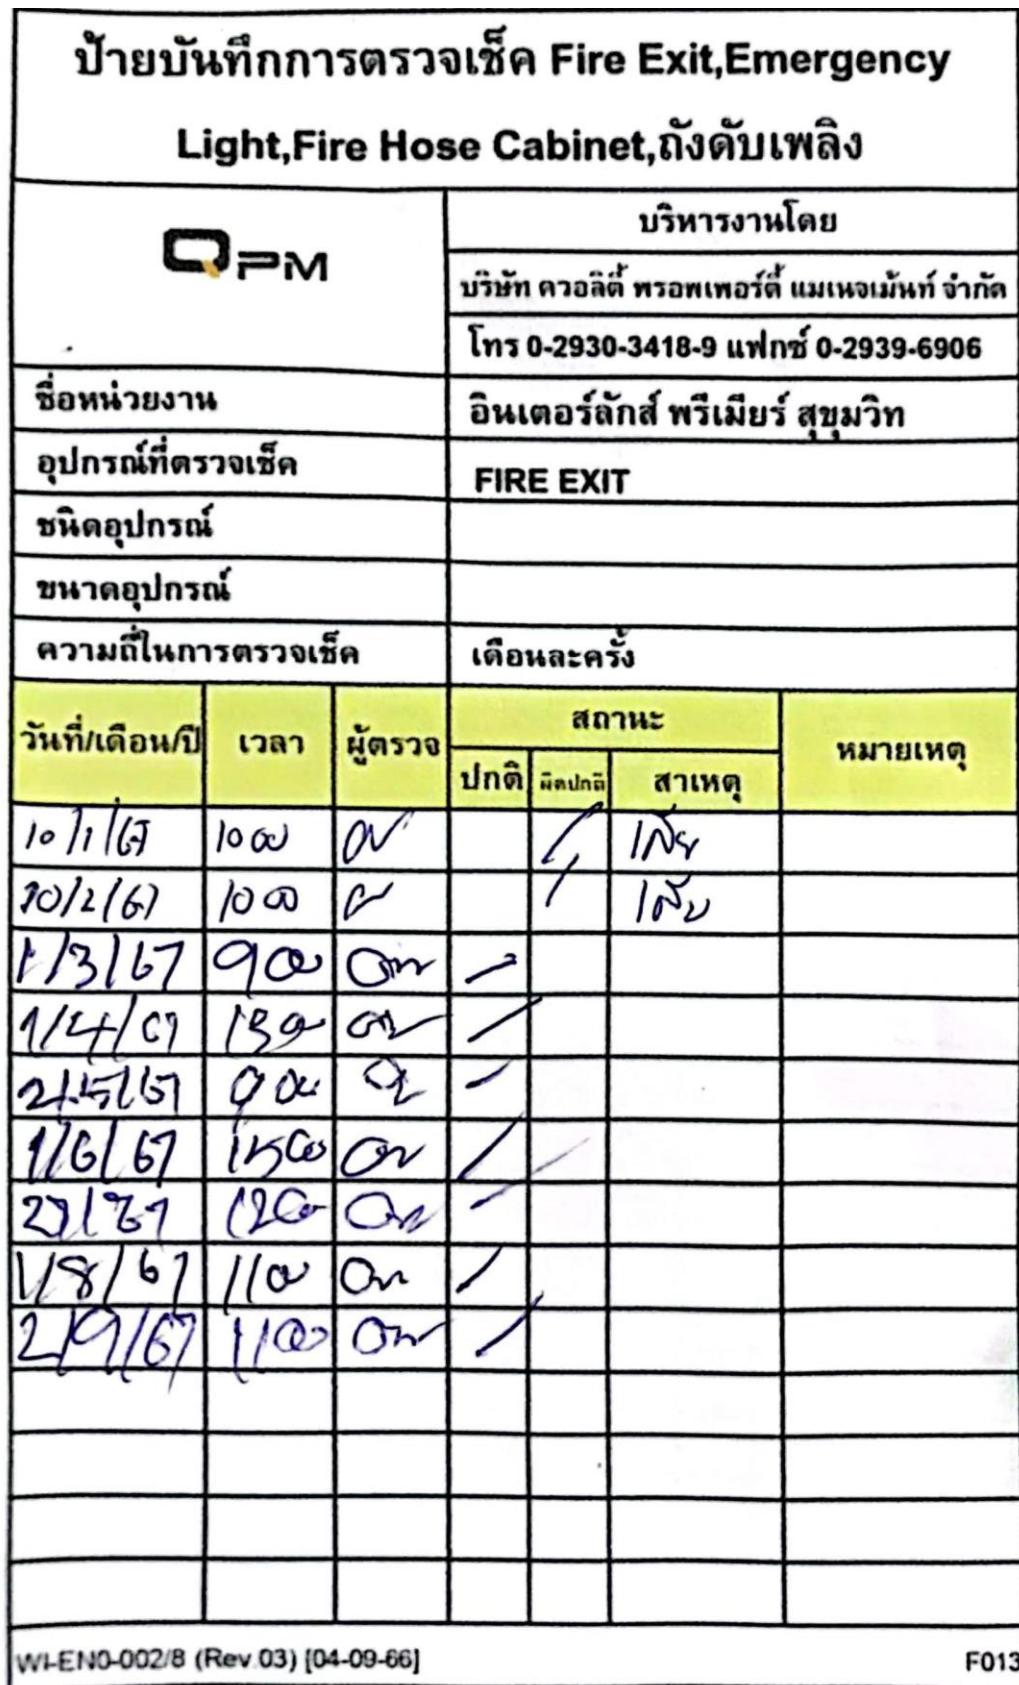 ป้ายบันทึกการตรวจเช็ค Fire Exit,Emergency
Light,Fire Hose Cabinet,ถังดับเพลิง
QPM
บริหารงานโดย
บริษัท ควอลิตี้ พรอพเพอร์ตี้ แมเนจเม้นท์ จำกัด
โทร 0-2930-3418-9 แฟกซ์ 0-2939-6906
ชื่อหน่วยงาน อินเตอร์ลักส์ พรีเมียร์ สุขุมวิท
อุปกรณ์ที่ตรวจเช็ค FIRE EXIT
ชนิดอุปกรณ์
ขนาดอุปกรณ์
ความถี่ในการตรวจเช็ค เดือนละครั้ง
วันที่/เดือน/ปี เวลา ผู้ตรวจ สถานะ หมายเหตุ
ปกติ ผิดปกติ สาเหตุ
10/1/67 1000 เสีย
10/2/67 1000 เสีย
1/3/67 900
1/4/67
2/5/67 900
1/6/67 1500
1/8/67 1100
2/9/67 1100
WI-EN0-002/8 (Rev.03) [04-09-66] F013